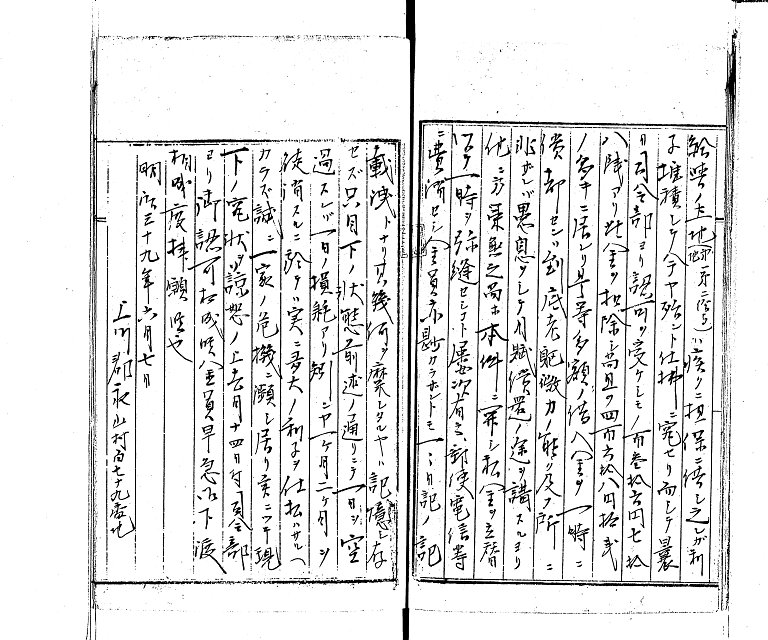 給与ノ土地(地第二階ニ)ハ疾クニ担保ニ借シ之レガ利
子堆積シテ今ヤ殆ント仕拂ニ窮セリ而シテ曩
ニ司令部ヨリ認可ヲ受ケシモノ百参拾六円七拾
八銭アリ此金ヲ扣除シ尚且ツ四百六拾八円拾弐
ノ多キニ居レリ早等多額ノ借入金ヲ一時ニ
償却センハ到底老躯微力ノ能ク及フ所ニ
非サレバ愚息ヲシテ月賦償還ノ途ヲ講スルヨリ
他ニ方策無之尚ホ本件ニ関シ私金ヲ立替
以テ一時ヲ弥縫センモ屡次有之郵便電信等
ニ費消セシ金員亦尠カラサレトモ一々日記ノ記
載洩トナリ其幾何ヲ費シタルヤハ記憶ニ存
セズ只目下ノ状態前述ノ通リニテ一日ヲ空
過スレバ一日ノ損耗アリ矧ニヤ一ケ月二ケ月ヲ
徒消スルニ於テハ実ニ多大ノ利子ヲ仕払ハサルヘ
カラズ誠ニ一家ノ危機ニ瀕シ居リ実ニ候現
下ノ窮状ヲ諒恕ノ上去月十四日付司令部
ヨリ御認可相成候金員早急御下渡
相成度拝願候也
明治三十九年六月七日
上川郡永山村百七十九番地